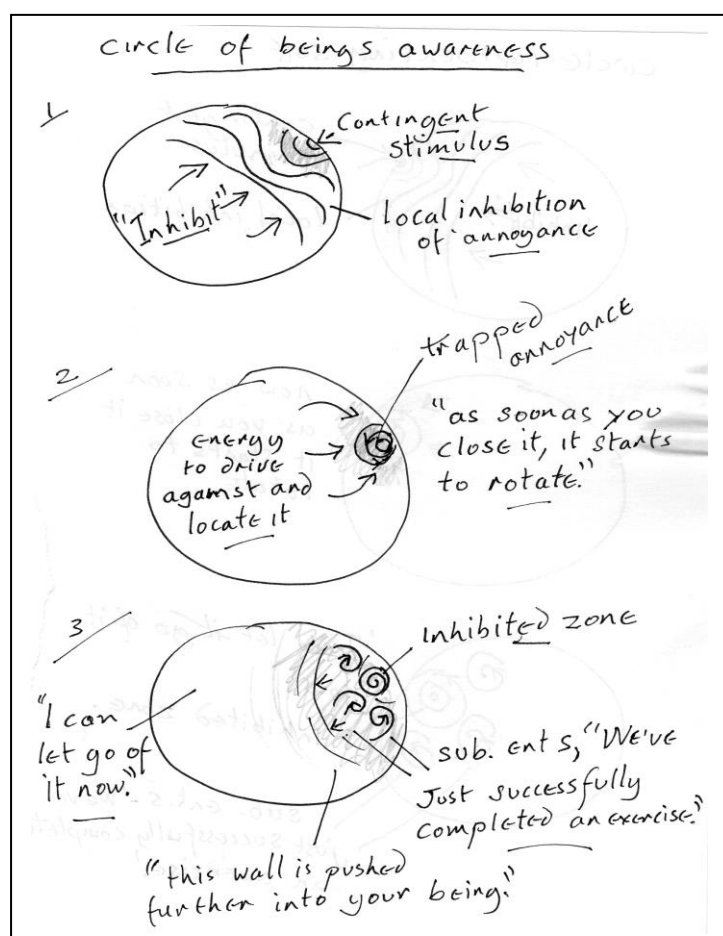 circle of beings awareness
1
contingent
stimulus
"Inhibit"
local inhibition
of annoyance
2
trapped
annoyance
energy
to drive
against and
locate it
"as soon as you
close it, it starts
to rotate."
3
Inhibited zone
"I can
let go of
it now."
sub. ent s, "We've
Just successfully
completed an exercise."
"this wall is pushed
further into your being."